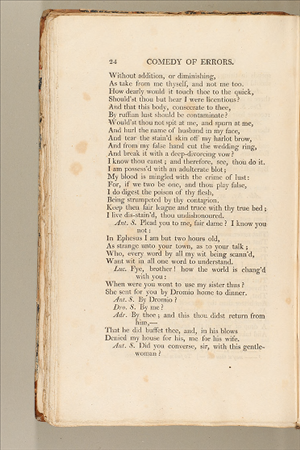 24 COMEDY OF ERRORS.
Without addition, or diminishing,
As take from me thyself, and not me too.
How dearly would it touch thee to the quick,
Should'st thou but hear I were licentious?
And that this body, consecrate to thee,
By ruffian lust should be contaminate?
Would'st thou not spit at me, and spurn at me,
And hurl the name of husband in my face,
And tear the stain'd skin off my harlot brow,
And from my false hand cut the wedding ring,
And break it with a deep-divorcing vow?
I know thou canst; and therefore, see, thou do it.
I am possess'd with an adulterate blot;
My blood is mingled with the crime of lust:
For, if we two be one, and thou play false,
I do digest the poison of thy flesh,
Being strumpeted by thy contagion.
Keep then fair league and truce with thy true bed;
I live dis-stain'd, thou undishonoured.
Ant. S. Plead you to me, fair dame? I know you
not:
In Ephesus I am but two hours old,
As strange unto your town, as to your talk;
Who, every word by all my wit being scann'd,
Want wit in all one word to understand.
Luc. Fye, brother! how the world is chang'd
with you:
When were you wont to use my sister thus?
She sent for you by Dromio home to dinner.
Ant. S. By Dromio?
Dro. S. By me?
Adr. By thee; and this thou didst return from
him,—
That he did buffet thee, and, in his blows
Denied my house for his, me for his wife.
Ant. S. Did you converse, sir, with this gentle-
woman?